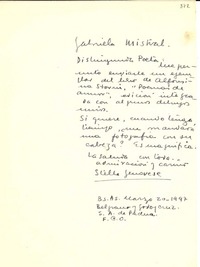 Gabriela Mistral.
Distinguida Poeta: me per-
mito enviarle un ejem-
plar del libro de Alfonsi-
na Storni, "Poemas de
amor", edición integra-
da con algunos dibujos
míos.
Si quiere, cuando tenga
tiempo me mandará
una fotografía con su
cabeza? Es magnífica.
La saluda con toda
admiración y cariño
Stella Genovese
Bs. As. Marzo 20-1947
Belgrano y Godoy Cruz.
S. A. de Padua
F. C. O.